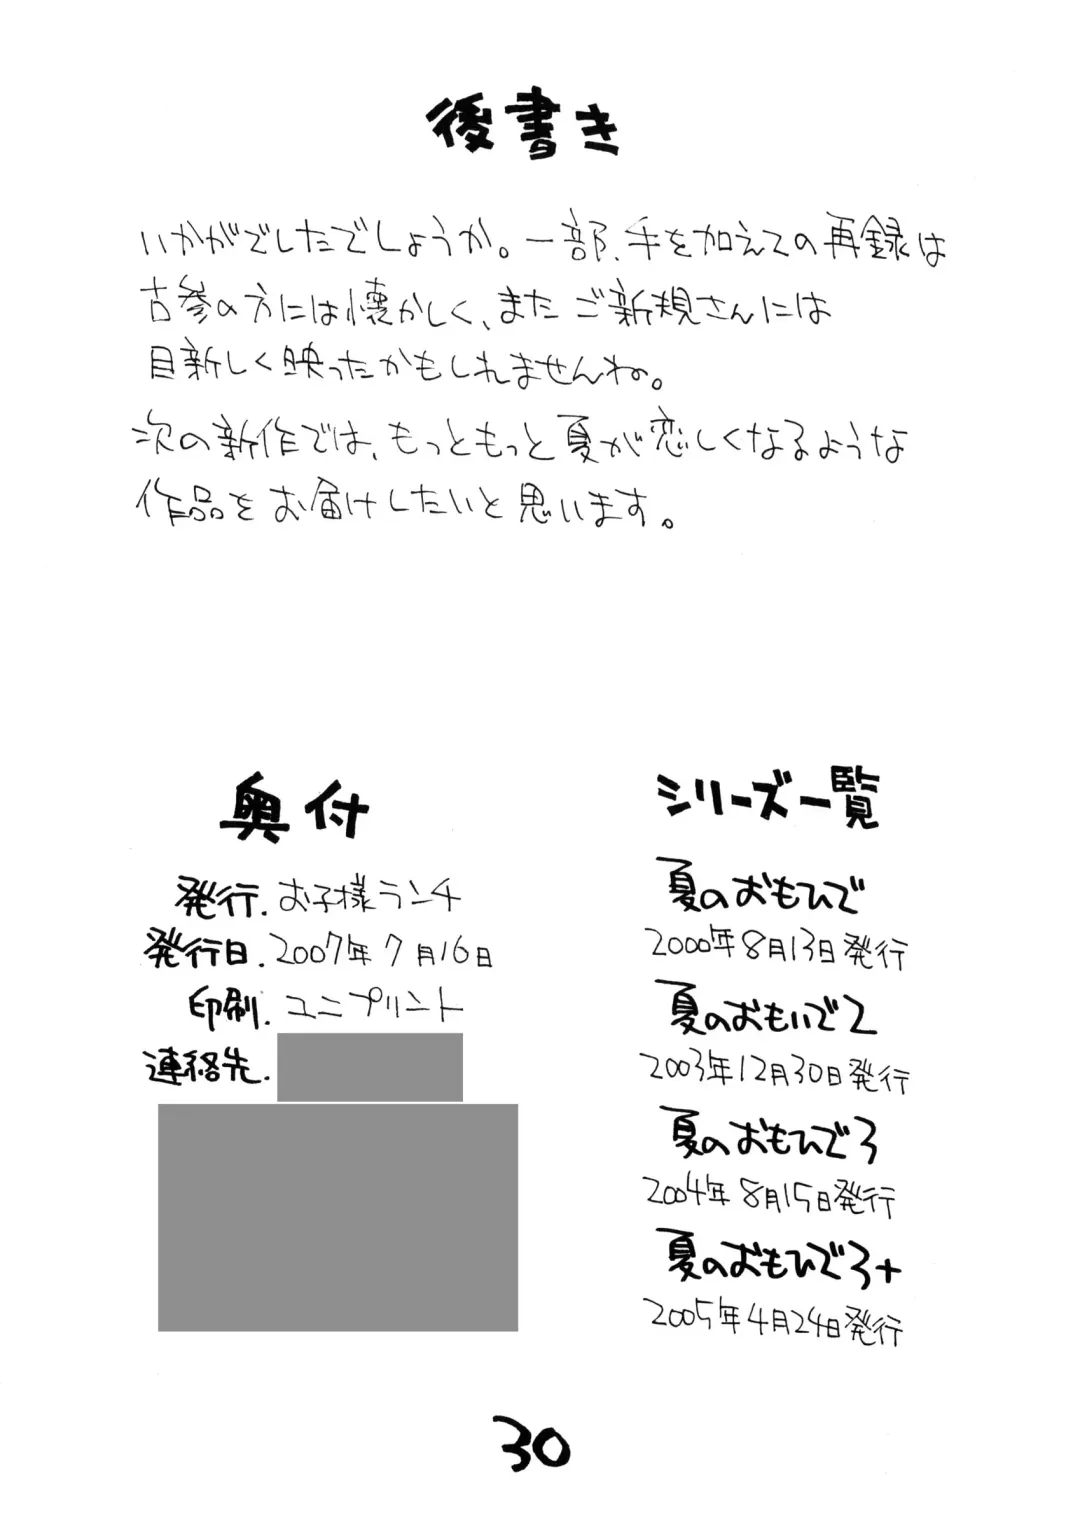 後書き
いかがでしたでしょうか。一部、手を加えての再録は
古参の方には懐かしく、また ご新規さんには
目新しく映ったかもしれませんね。
次の新作では、もっともっと夏が恋しくなるような
作品を お届けしたいと思います。
奥付
発行. お子様ランチ
発行日. 2007年7月16日
印刷. ユニプリント
連絡先.
シリーズ一覧
夏のおもひで
2000年8月13日発行
夏のおもいで2
2003年12月30日発行
夏のおもひで3
2004年8月15日発行
夏のおもひで3+
2005年4月24日発行
30